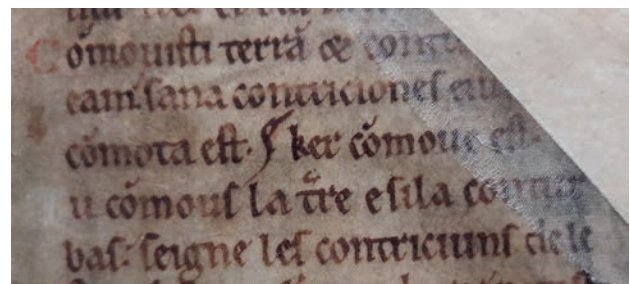 Comouisti terrā & contur
eam. sana contriciones eiu
cōmota est. ſ ker cōmoue est.
u cōmous la t̄re e si la contur
bas: seigne les contriciuns de le